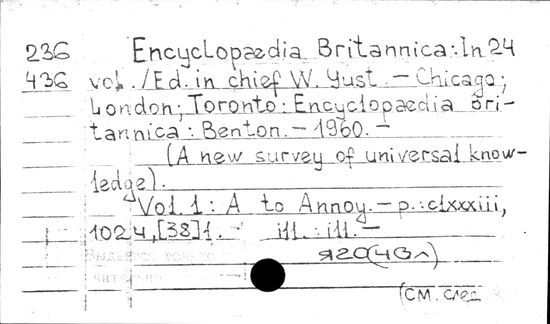 236 Encyclopædia Britannica: In 24
436 vol. /Ed. in chief W. Yust. – Chicago;
London; Toronto: Encyclopaedia Bri-
tannica: Benton. – 1960. –
(A new survey of universal know-
ledge).
Vol. 1: A to Annoy. – p.: clxxxiii,
1024, [38] l. - ill.: ill. –
Выдается только
(СМ. след